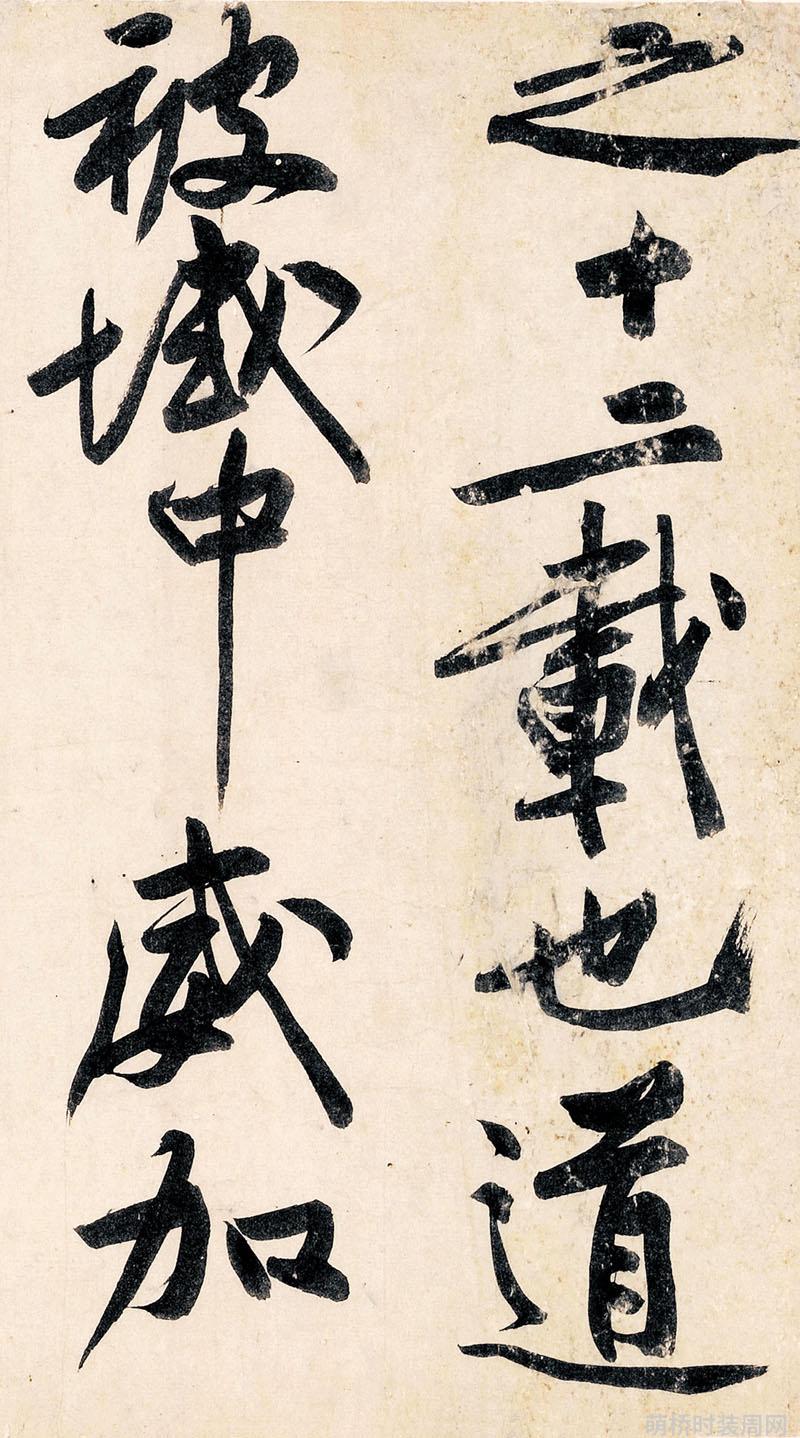 之十二載也道
被域中威加
萌桥时装周网